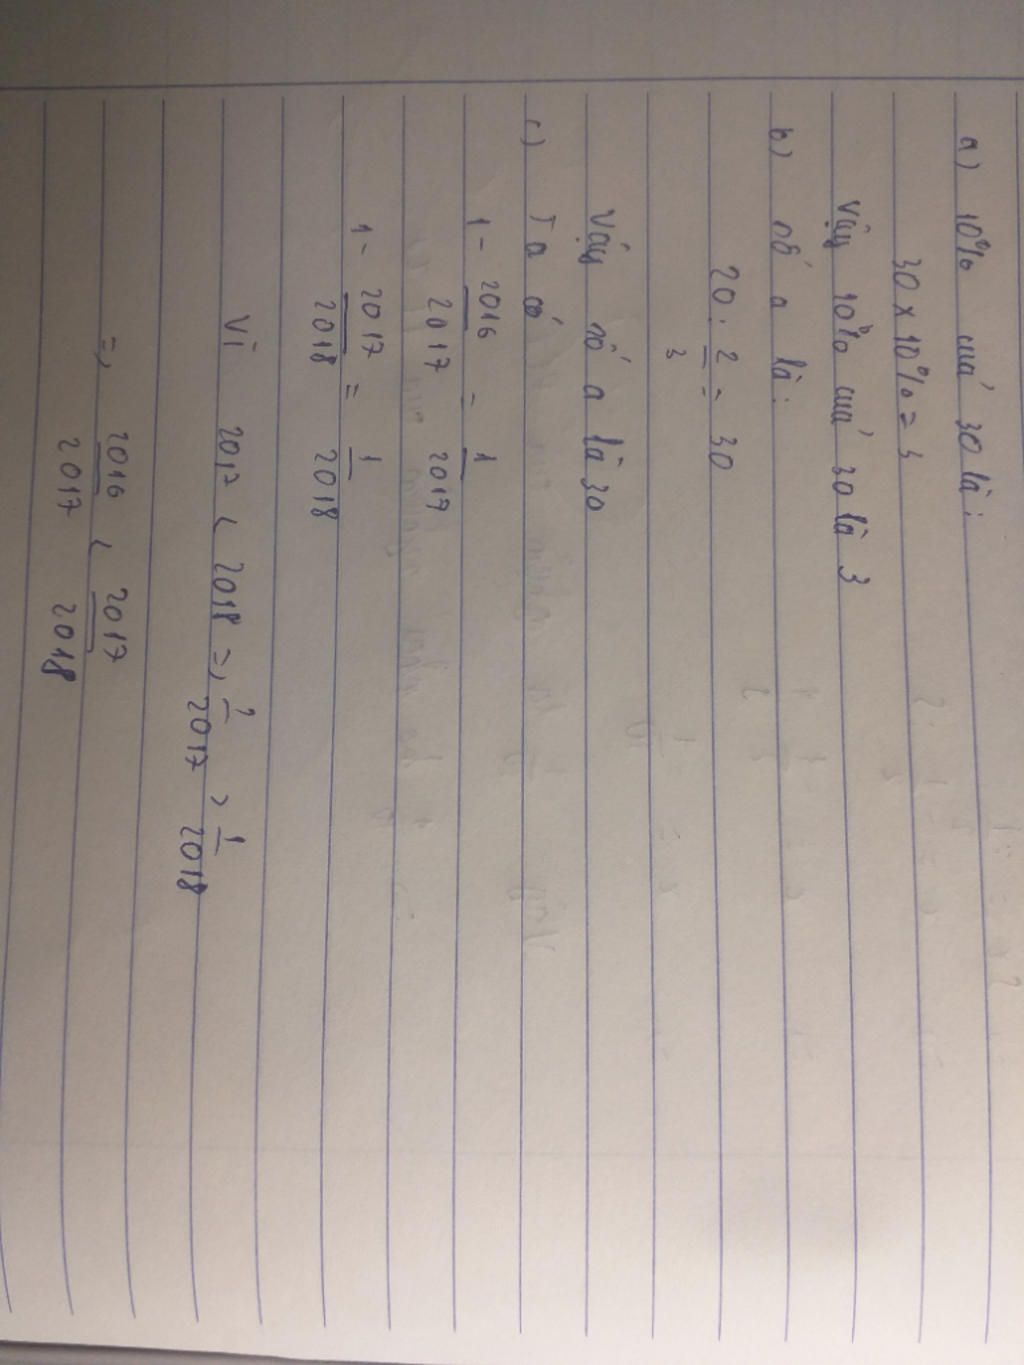 a) 10% của 30 là:
30 x 10% = 3
Vậy 10% của 30 là 3
b) số a là:
20 : 2/3 = 30
Vậy số a là 30
c) Ta có
1 - 2016/2017 = 1/2017
1 - 2017/2018 = 1/2018
Vì 2017 < 2018 => 1/2017 > 1/2018
=> 2016/2017 < 2017/2018